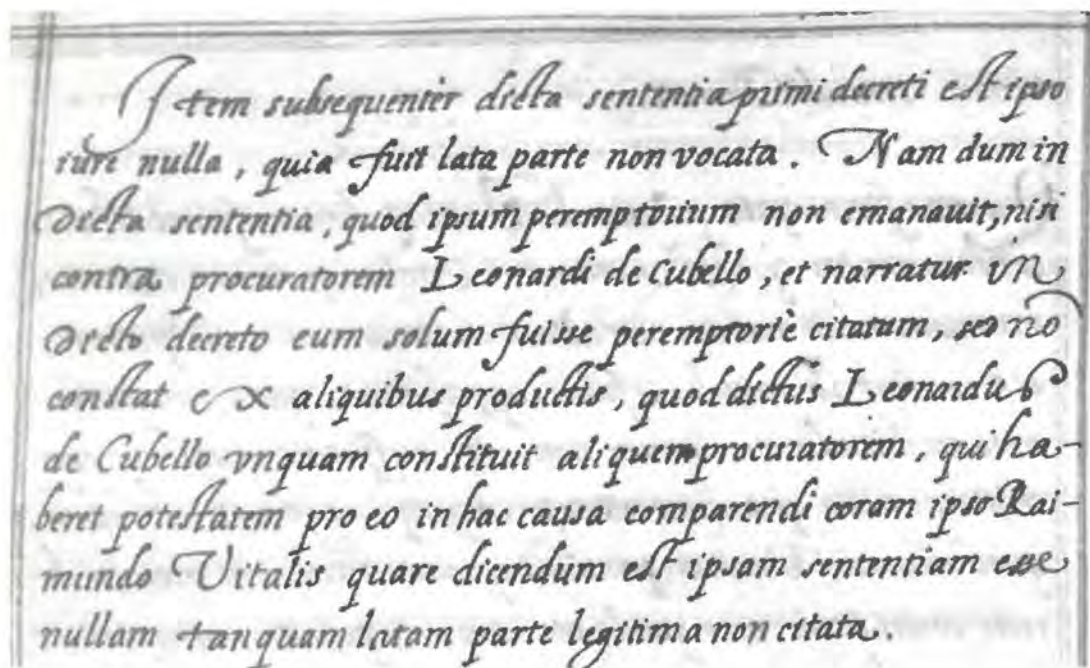 Item subsequenter dicta sententia primi decreti est ipso
iure nulla, quia fuit lata parte non vocata. Nam dum in
dicta sententia, quod ipsum peremptorium non emanauit, nisi
contra procuratorem Leonardi de Cubello, et narratur in
dicto decreto eum solum fuisse peremptoriè citatum, sed nõ
constat ex aliquibus productis, quod dictus Leonardus
de Cubello vnquam constituit aliquem procuratorem, qui ha-
beret potestatem pro eo in hac causa comparendi coram ipso Rai-
mundo Vitalis quare dicendum est ipsam sententiam esse
nullam tanquam latam parte legitima non citata.